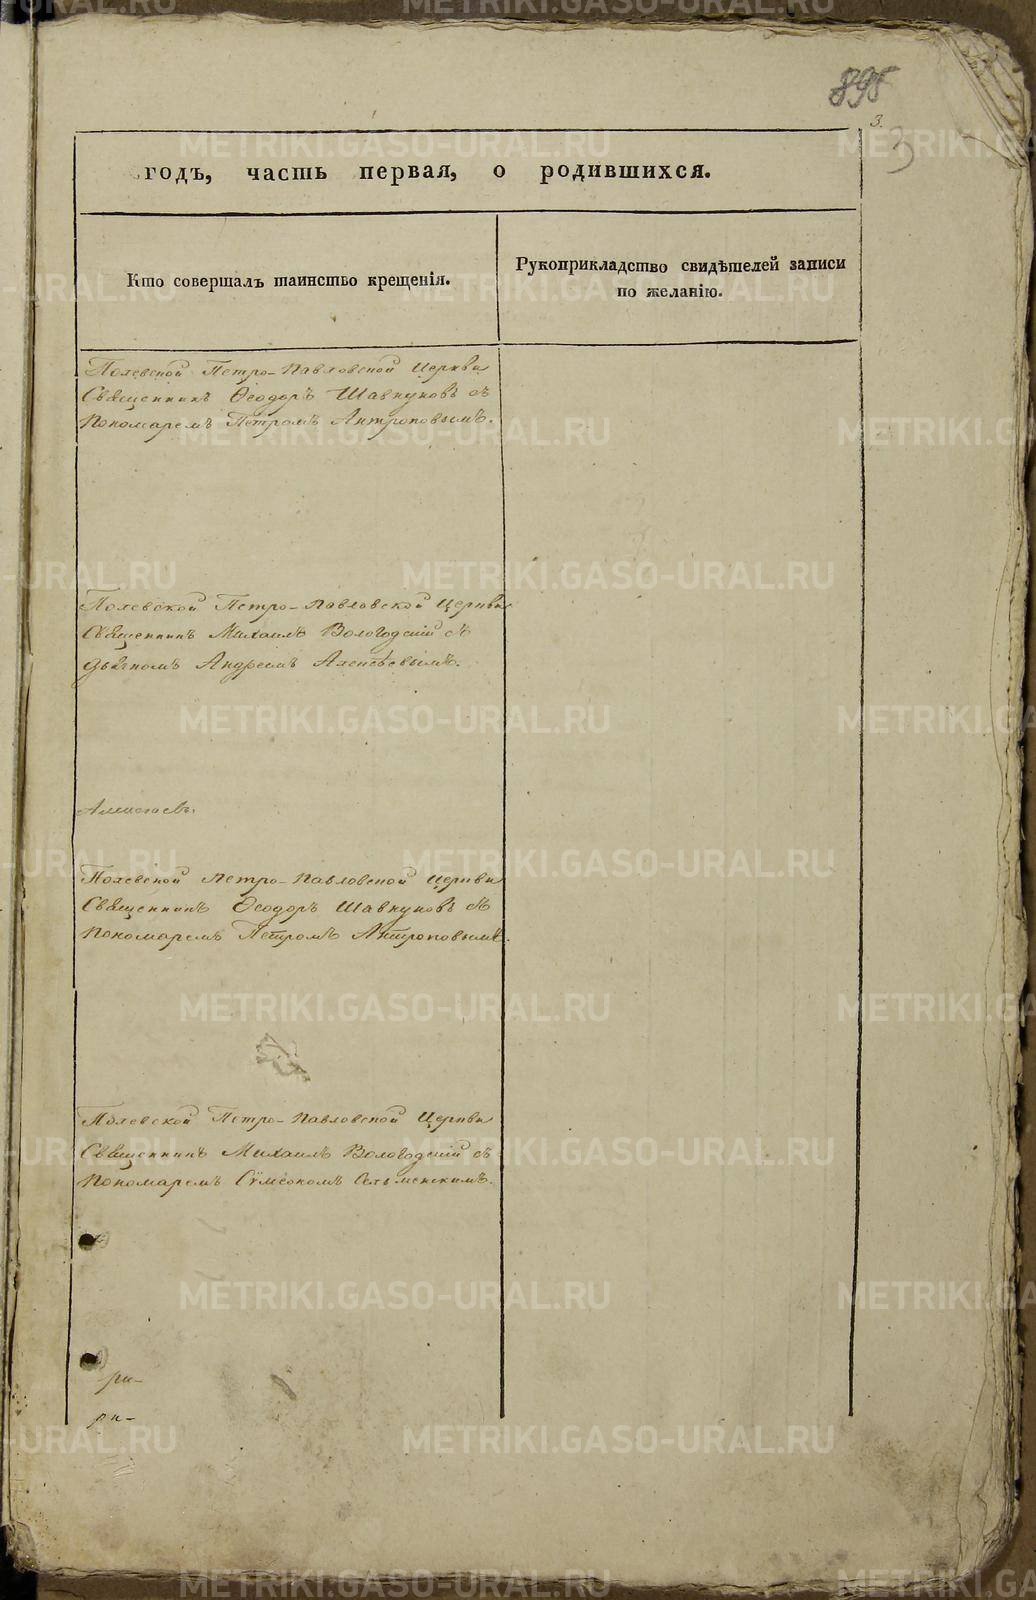 895
3.
3
годъ, часть первая, о родившихся.
Кто совершалъ таинство крещенія.
Рукоприкладство свидѣтелей записи
по желанію.
Полевской Петро-Павловской Церкви
Священникъ Ѳеодоръ Шавкуновъ съ
Пономаремъ Петромъ Антроповымъ.
Полевской Петро-Павловской Церкви
Священникъ Михаилъ Вологодскій съ
Дьячкомъ Андреемъ
Полевской Петро-Павловской Церкви
Священникъ Ѳеодоръ Шавкуновъ съ
Пономаремъ Петромъ Антроповымъ.
Полевской Петро-Павловской Церкви
Священникъ Михаилъ Вологодскій съ
Пономаремъ Сѵмеономъ Сельменскимъ.
ри-
ри-
METRIKI.GASO-URAL.RU